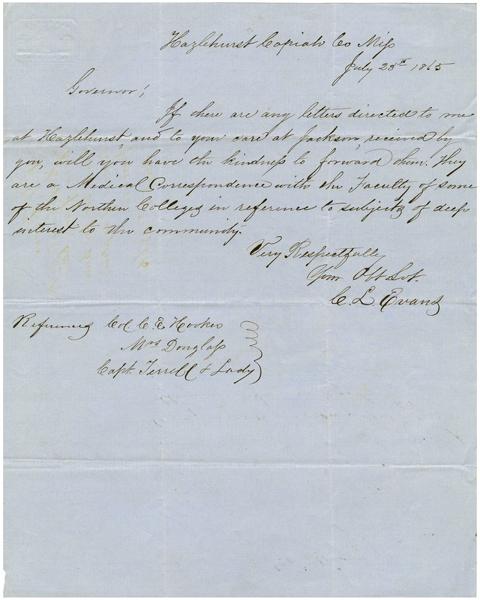 Hazlehurst Copiah Co Miss
July 28th 1865
Governor;
If there are any letters directed to me
at Hazlehurst and to your care at Jackson received by
you, will you have the kindness to forward them. They
are a Medical Correspondence with the Faculty of some
of the Northern Colleges in reference to subjects of deep
interest to the community.
Very Respectfully
Your Obt Svt.
C. L Evans
References Col C. E. Hooker
Mrs Douglass
Capt. Terrell & Lady